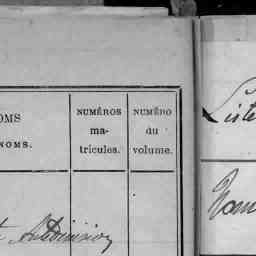 OMS
NOMS.
NUMÉROS
ma-
tricules.
NUMÉRO
du
volume.
Liste
Nom